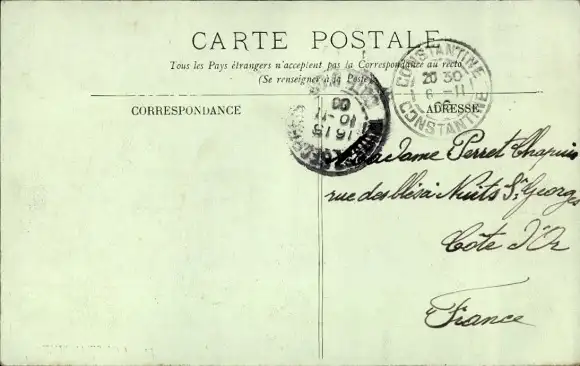 CARTE POSTALE
Tous les Pays étrangers n'acceptent pas la Correspondance au recto
(Se renseigner à la Poste)
CONSTANTINE
20 30
6 - 11
CONSTANTINE
15 15
10 - 11
CORRESPONDANCE
ADRESSE
Madame Perret Chapuis
rue des Nuits St Georges
Côte d'Or
France